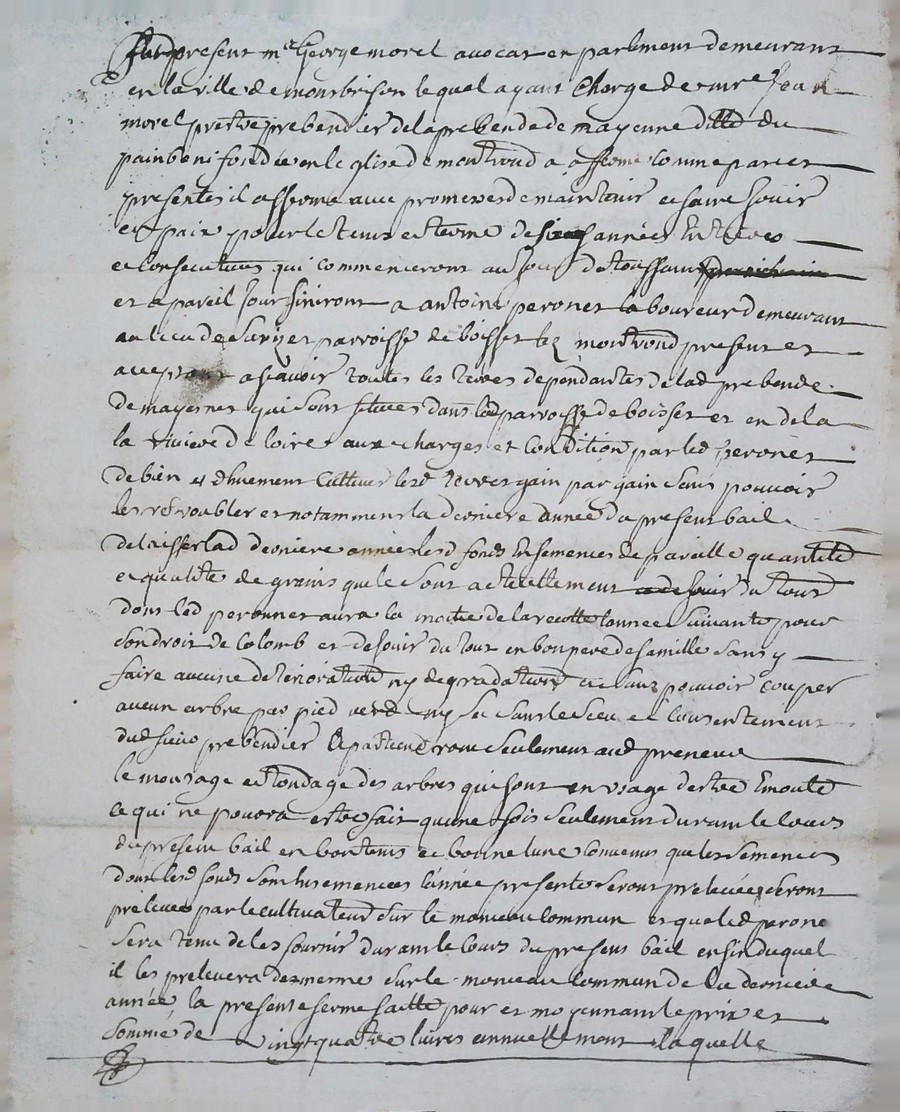 Fut present me George morel avocat en parlement demeurant
en la ville de montbrison lequel ayant Charge de mre Jean
morel prestre prebendier de la prebende de mayenne du
pain beni fondée en leglise de montrond a afferme comme par ces
presentes il afferme avec promesses de maintenir et faire Jouir
en paix pour le tems et terme de six années Entieres
et consecutives qui commenceront au Jour de toussaint
et a pareil Jour finiront a antoine peronet laboureur demeurant
au lieu de parroisse de boisset lez montrond present et
acceptant a scavoir toutes les terres dependantes de lad prebende
de mayenne qui sont situees dans lad parroisse de boisset et en dela
la riviere de loire aux charges et condition par led peronet
de bien et dhuement Cultiver lesd terres gain par gain sans pouvoir
les retroubler et notamment la derniere année du present bail
delaisser lad derniere année lesd fonds Ensemences de pareille quantité
et qualité de grains quele sont actuellement du tout
dont led peronnet aura la moitie de la recolte lannee suivante pour
son droit de Colomb et de Jouir du tout en bon pere de famille sans y
faire aucune deterioration ny degradation et sans pouvoir couper
aucun arbre par pied verd ny sec sans le sceu et consentement
dud sieur prebendier seulement aud preneur
le mousage et tondage des arbres qui sont en usage destre Emouté
ce qui ne pouvra estre fait qune fois seulement durant le cours
du present bail en bon tems et bonne lune convenus que les semences
dont lesd fonds sont Ensemences lannée presente seront
prelevees par le cultivateur sur le monceau commun et que led perone
sera tenu de les fournir durant le cours du present bail en fin duquel
il les prelevera de mesme sur le monceau commun de lad derniere
année, la presente ferme faitte pour et moyennant le prix et
somme de vingt quatre livres annuellement laquelle